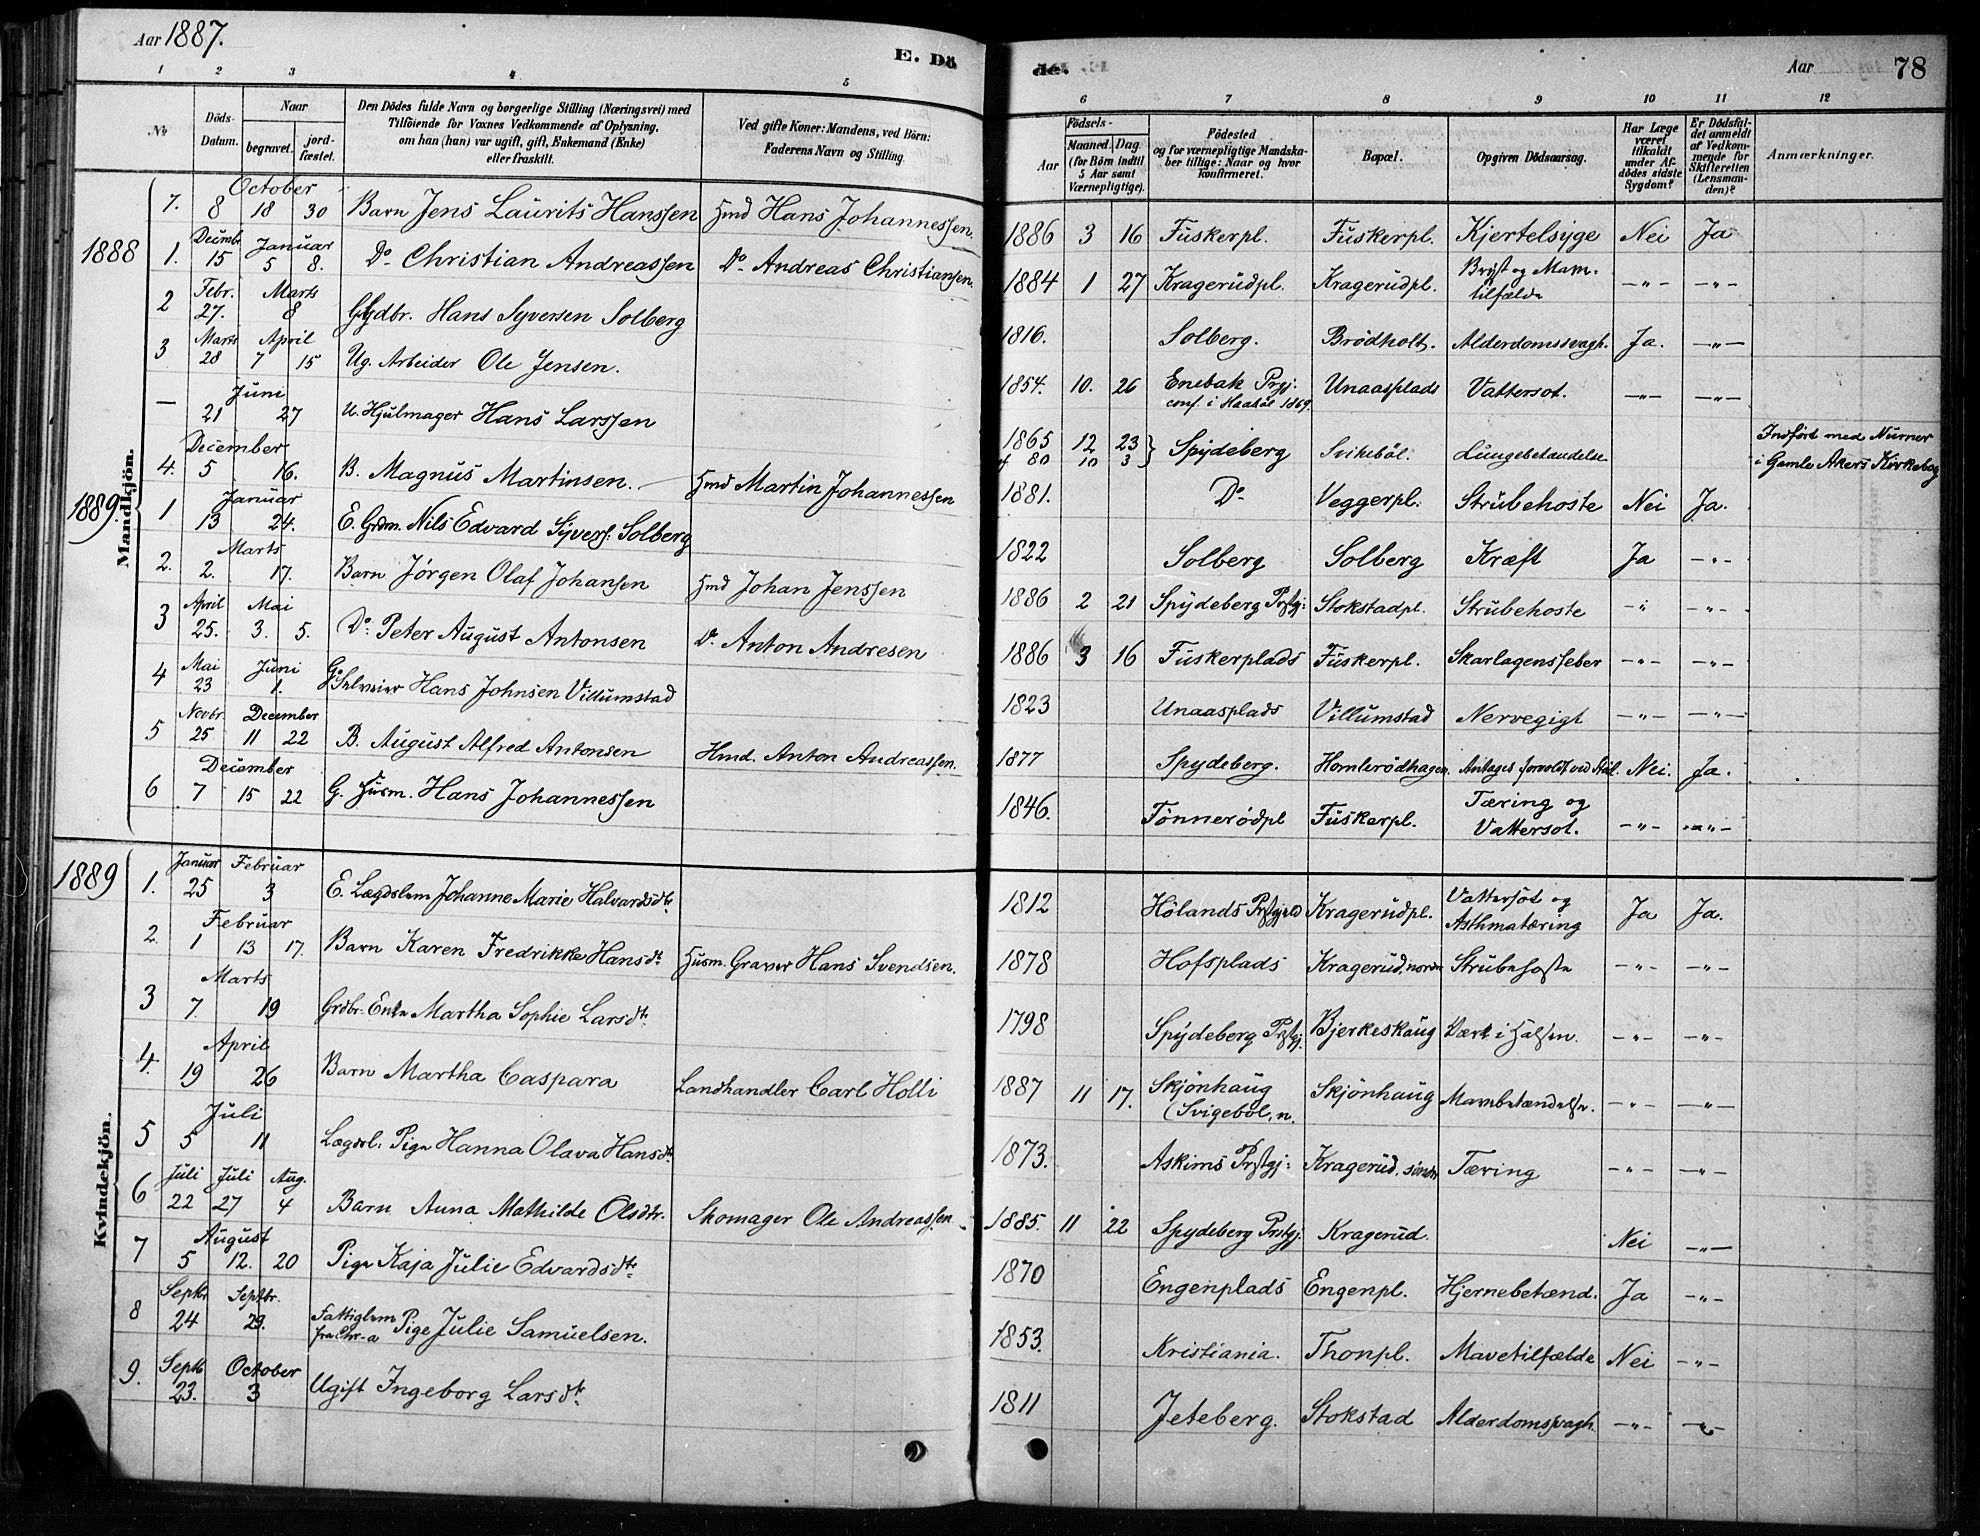 Aar 1887.
E. Dö
de.
Aar 78
1 2 3 4 5
6 7 8 9 10 11 12
No
Döds-Datum.
Naar
begravet.
jord-fæstet.
Den Dödes fulde Navn og borgerlige Stilling (Næringsvei) med
Tilföiende for Voxnes Vedkommende af Oplysning,
om han (hun) var ugift, gift, Enkemand (Enke)
eller fraskilt.
Ved gifte Koner: Mandens, ved Börn:
Faderens Navn og Stilling.
Födsels-
Aar
Maaned. Dag
(for Börn indtil
5 Aar samt
Værnepligtige).
Födested
og for værnepligtige Mandska-
ber tillige: Naar og hvor
konfirmeret.
Bopæl.
Opgiven Dödsaarsag.
Har Læge
været
tilkaldt
under Af-
dødes sidste
Sygdom?
Er Dödsfal-
det anmeldt
af Vedkom-
mende for
Skifteretten
(Lensman-
den)?
Anmærkninger.
Mandkjön.
October
7. 8 18 30 Barn Jens Laurits Hanssen Hmd Hans Johannessen. 1886 3 16 Fuskerpl. Fuskerpl. Kjertelsyge Nei Ja
1888
Decembr Januar
1. 15 5 8. Do Christian Andreassen Do Andreas Christiansen. 1884 1 27 Kragerudpl. Kragerudpl. Bryst og Mave-
tilfælde -"- -"-
Febr. Marts
2 27. 8 Hans Syversen Solberg 1816. Solberg. Brödholt. Alderdomssvagh. Ja. -"-
Marts April
3 28 7 15 Ug. Arbeider Ole Jensen. 1854. 10. 26 Enebak Prgj. Unaasplads Vattersot. -"- -"-
conf. i Haabøl 1869.
Juni
— 21 27 U. Hjulmager Hans Larssen 1865 12 23 } Spydeberg Svikebøl. Lungebetændelse
f 80 10 3
Indført med Numer
i Gamle Akers Kirkebog
December
4. 5 16. B. Magnus Martinsen. Hmd Martin Johannessen 1881. Do Veggerpl. Strubehoste Nei Ja.
1889
Januar
1 13 24. E. Grdm. Nils Edvard Syvers. Solberg 1822 Solberg Solberg Kræft Ja -"-
Marts
2. 2. 17. Barn Jørgen Olaf Johansen Hmd Johan Jenssen 1886 2 21 Spydeberg Prstgj: Stokstadpl. Strubehoste -"- -"-
April Mai
3 25. 3. 5. Do Peter August Antonsen Do Anton Andresen 1886 3 16 Fuskerplads Fuskerpl. Skarlagensfeber -"- -"-
Mai Juni
4 23 1. Gd Selveier Hans Johnsen Villumstad 1823 Unaasplads Villumstad Nervegigt -"- -"-
Novbr. December
5 25 11 22 B. August Alfred Antonsen Hmd. Anton Andreassen. 1877 Spydeberg. Homlerødhagen Antages forvoldt ved Nei. Ja.
December
6 7 15 22 G. Husm. Hans Johannessen 1846. Tønnerødpl Fuskerpl. Tæring og
Vattersot. -"- -"-
Kvindekjön.
1889
Januar Februar
1. 25 3 E. Lægdslem Johanne Marie Halvardsdtr 1812 Hölands Prstgjeld Kragerudpl. Vattersot og
Asthmatæring Ja Ja.
Februar
2. 1 13 17. Barn Karen Fredrikke Hansdtr Husm. Graver Hans Svendsen. 1878 Hofsplads Kragerud, nordre Strubehoste -"- -"-
Marts
3 7. 19 Grdbr. Enke Martha Sophie Larsdtr. 1798 Spydeberg Prstgj. Bjerkeskaug Værk i Halsen. -"- -"-
April
4. 19 26 Barn Martha Caspara Landhandler Carl Holli 1887 11 17. Skjönhaug Skjönhaug Mavebetændelse. -"- -"-
(Svigebøl, n.
Juli
5 5 11 Lægdsl: Pige Hanna Olava Hansdtr. 1873. Askims Prstgj: Kragerud, søndre Tæring -"- -"-
Juli Juli Aug.
6 22 27 4 Barn Anna Mathilde Olsdtr. Skomager Ole Andreassen. 1885. 11 22 Spydeberg Prstgj. Kragerud. Nei -"-
August
7 5 12. 20 Pige Kaja Julie Edvardsdtr 1870 Engenplads Engenpl. Hjernebetænd. Ja -"-
Septbr Septbr.
8 24 29. Fattiglem
fra Chr-a Pige Julie Samuelsen. 1853. Kristiania. Thonpl. Mavetilfælde Nei -"-
Septb October
9. 23. 3 Ugift Ingeborg Larsdtr. 1811 Jeteberg. Stokstad Alderdomssvagh. -"- -"-